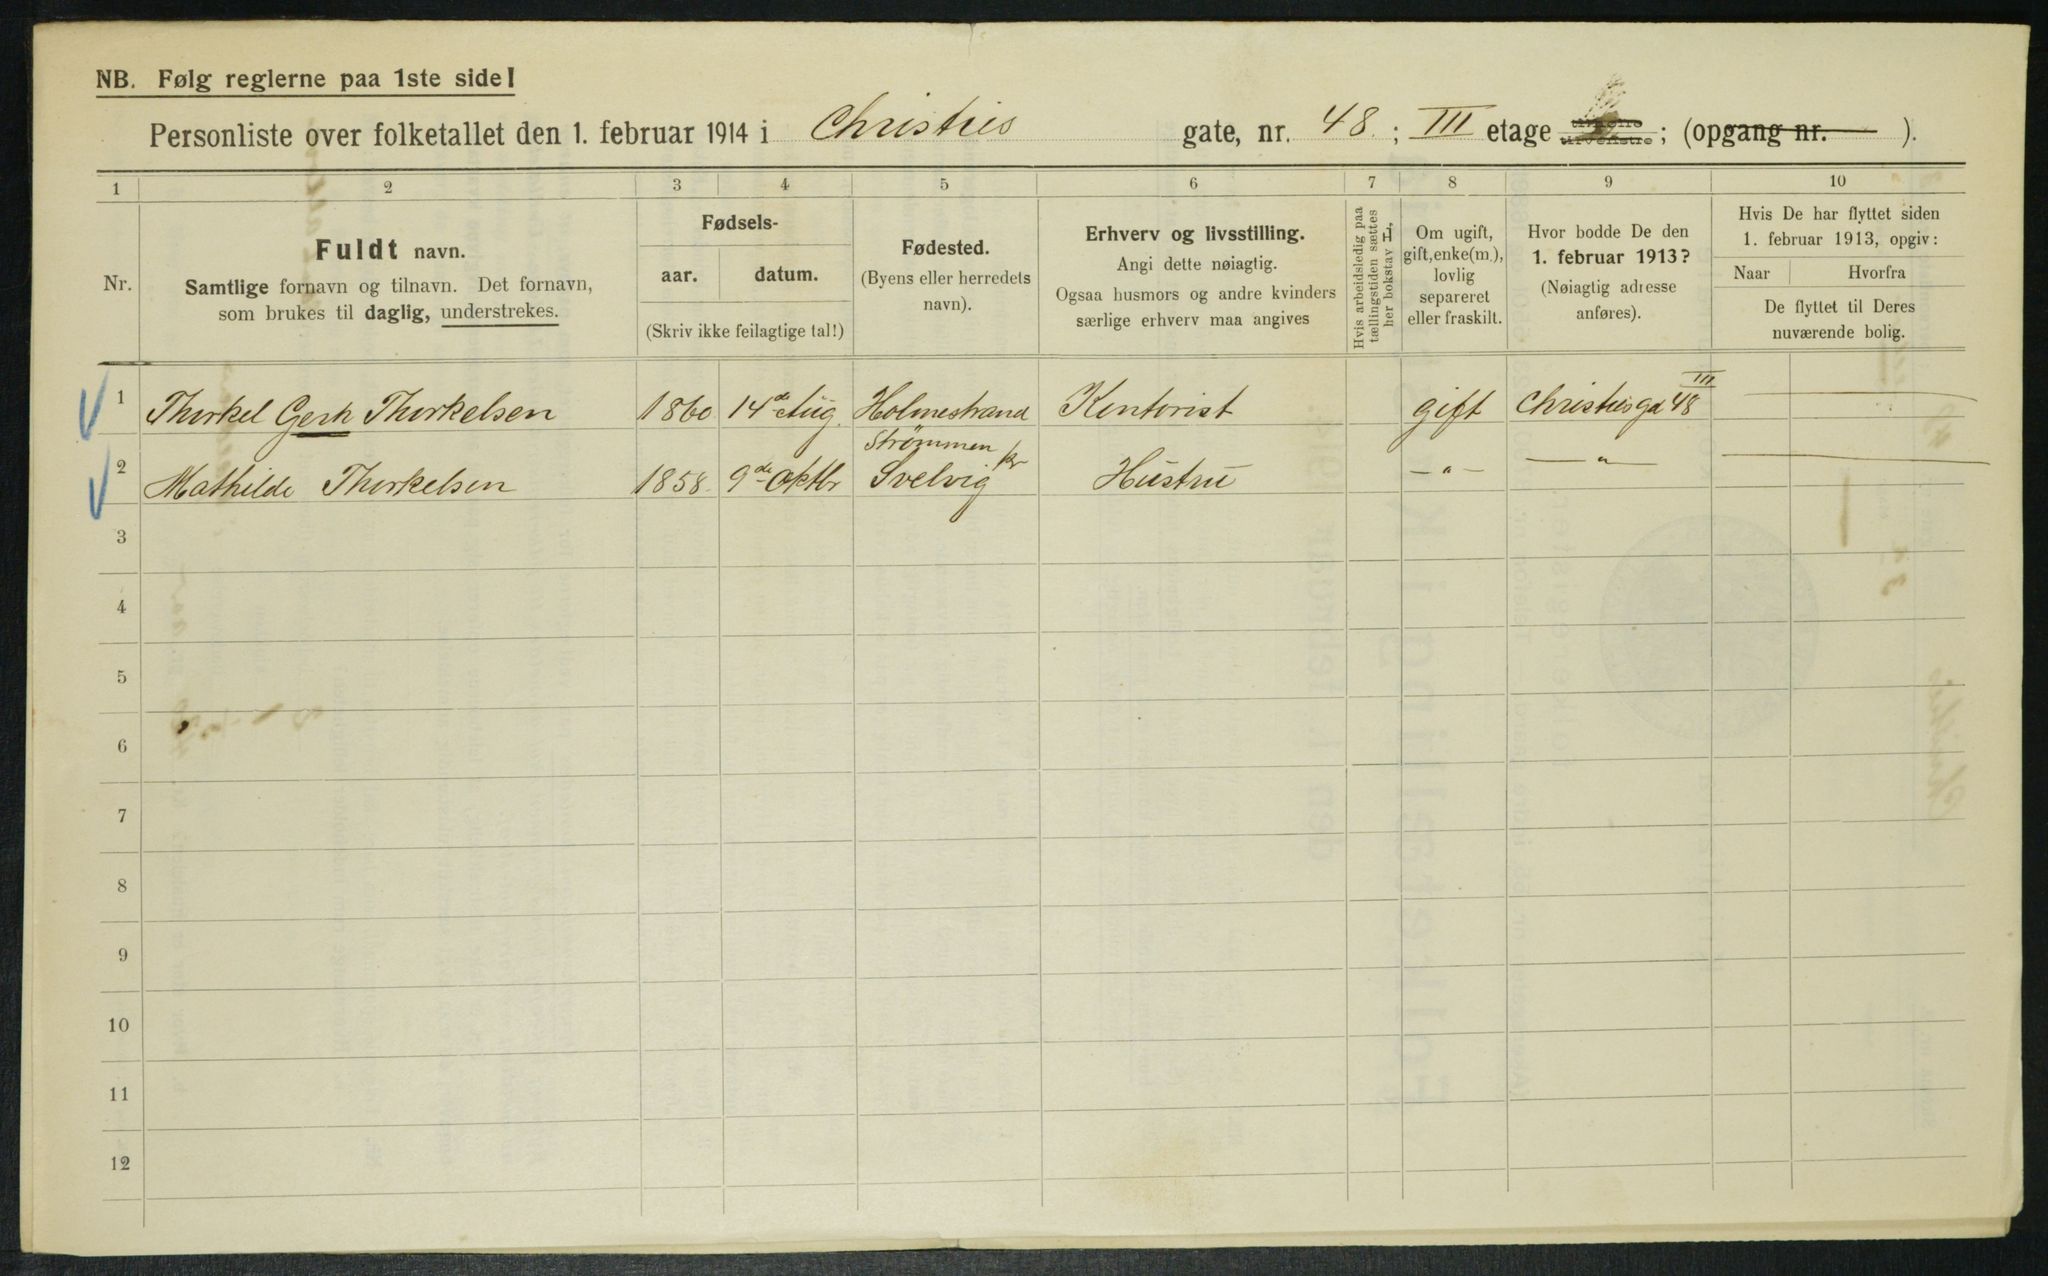 NB. Følg reglerne paa 1ste side!
Personliste over folketallet den 1. februar 1914 i Christies gate, nr. 48; III etage; (opgang nr. ).
1 2 3 4 5 6 7 8 9 10
Nr.
Fuldt navn.
Samtlige fornavn og tilnavn. Det fornavn,
som brukes til daglig, understrekes.
Fødsels-
aar. datum.
(Skriv ikke feilagtige tal!)
Fødested.
(Byens eller herredets
navn).
Erhverv og livsstilling.
Angi dette nøiagtig.
Ogsaa husmors og andre kvinders
særlige erhverv maa angives
Hvis arbeidsledig paa
tællingstiden sættes
her bokstav L.
Om ugift,
gift, enke(m.),
lovlig
separeret
eller fraskilt.
Hvor bodde De den
1. februar 1913?
(Nøiagtig adresse
anføres).
Hvis De har flyttet siden
1. februar 1913, opgiv:
Naar Hvorfra
De flyttet til Deres
nuværende bolig.
1 Thorkel Gerh Thorkelsen 1860 14de Aug. Holmestrand Kontorist gift Christiesgd 48 III
2 Mathilde Thorkelsen 1858 9de Oktbr Strømmen pr Svelvig Hustru — " — — " —
3
4
5
6
7
8
9
10
11
12